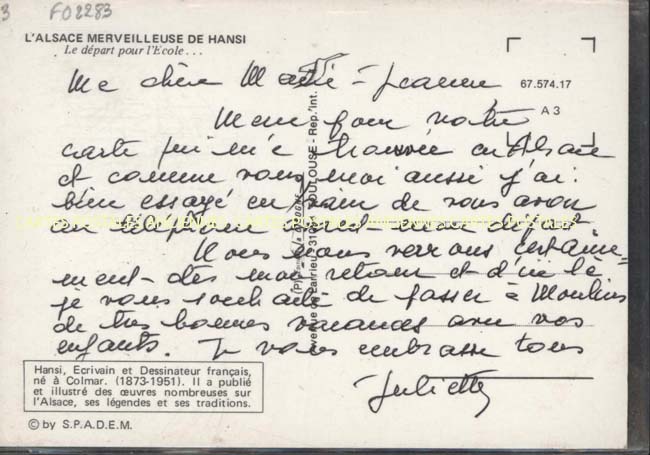 3 F02283
L'ALSACE MERVEILLEUSE DE HANSI
Le départ pour l'École...
67.574.17
A 3
Me chère Marie-Jeanne
Merci pour votre
carte qui m'a trouvée en Alsace
et comme vous moi aussi j'ai
bien essayé en vain de vous avoir
au téléphone avant votre départ
Nous nous verrons certaine-
ment dès mon retour et d'ici là
je vous souhaite de passer à Moulins
de très bonnes vacances avec vos
enfants. Je vous embrasse tous
Juliette
TOULOUSE - Rep. Int.
Hansi, Ecrivain et Dessinateur français,
né à Colmar. (1873-1951). Il a publié
et illustré des œuvres nombreuses sur
l'Alsace, ses légendes et ses traditions.
© by S.P.A.D.E.M.